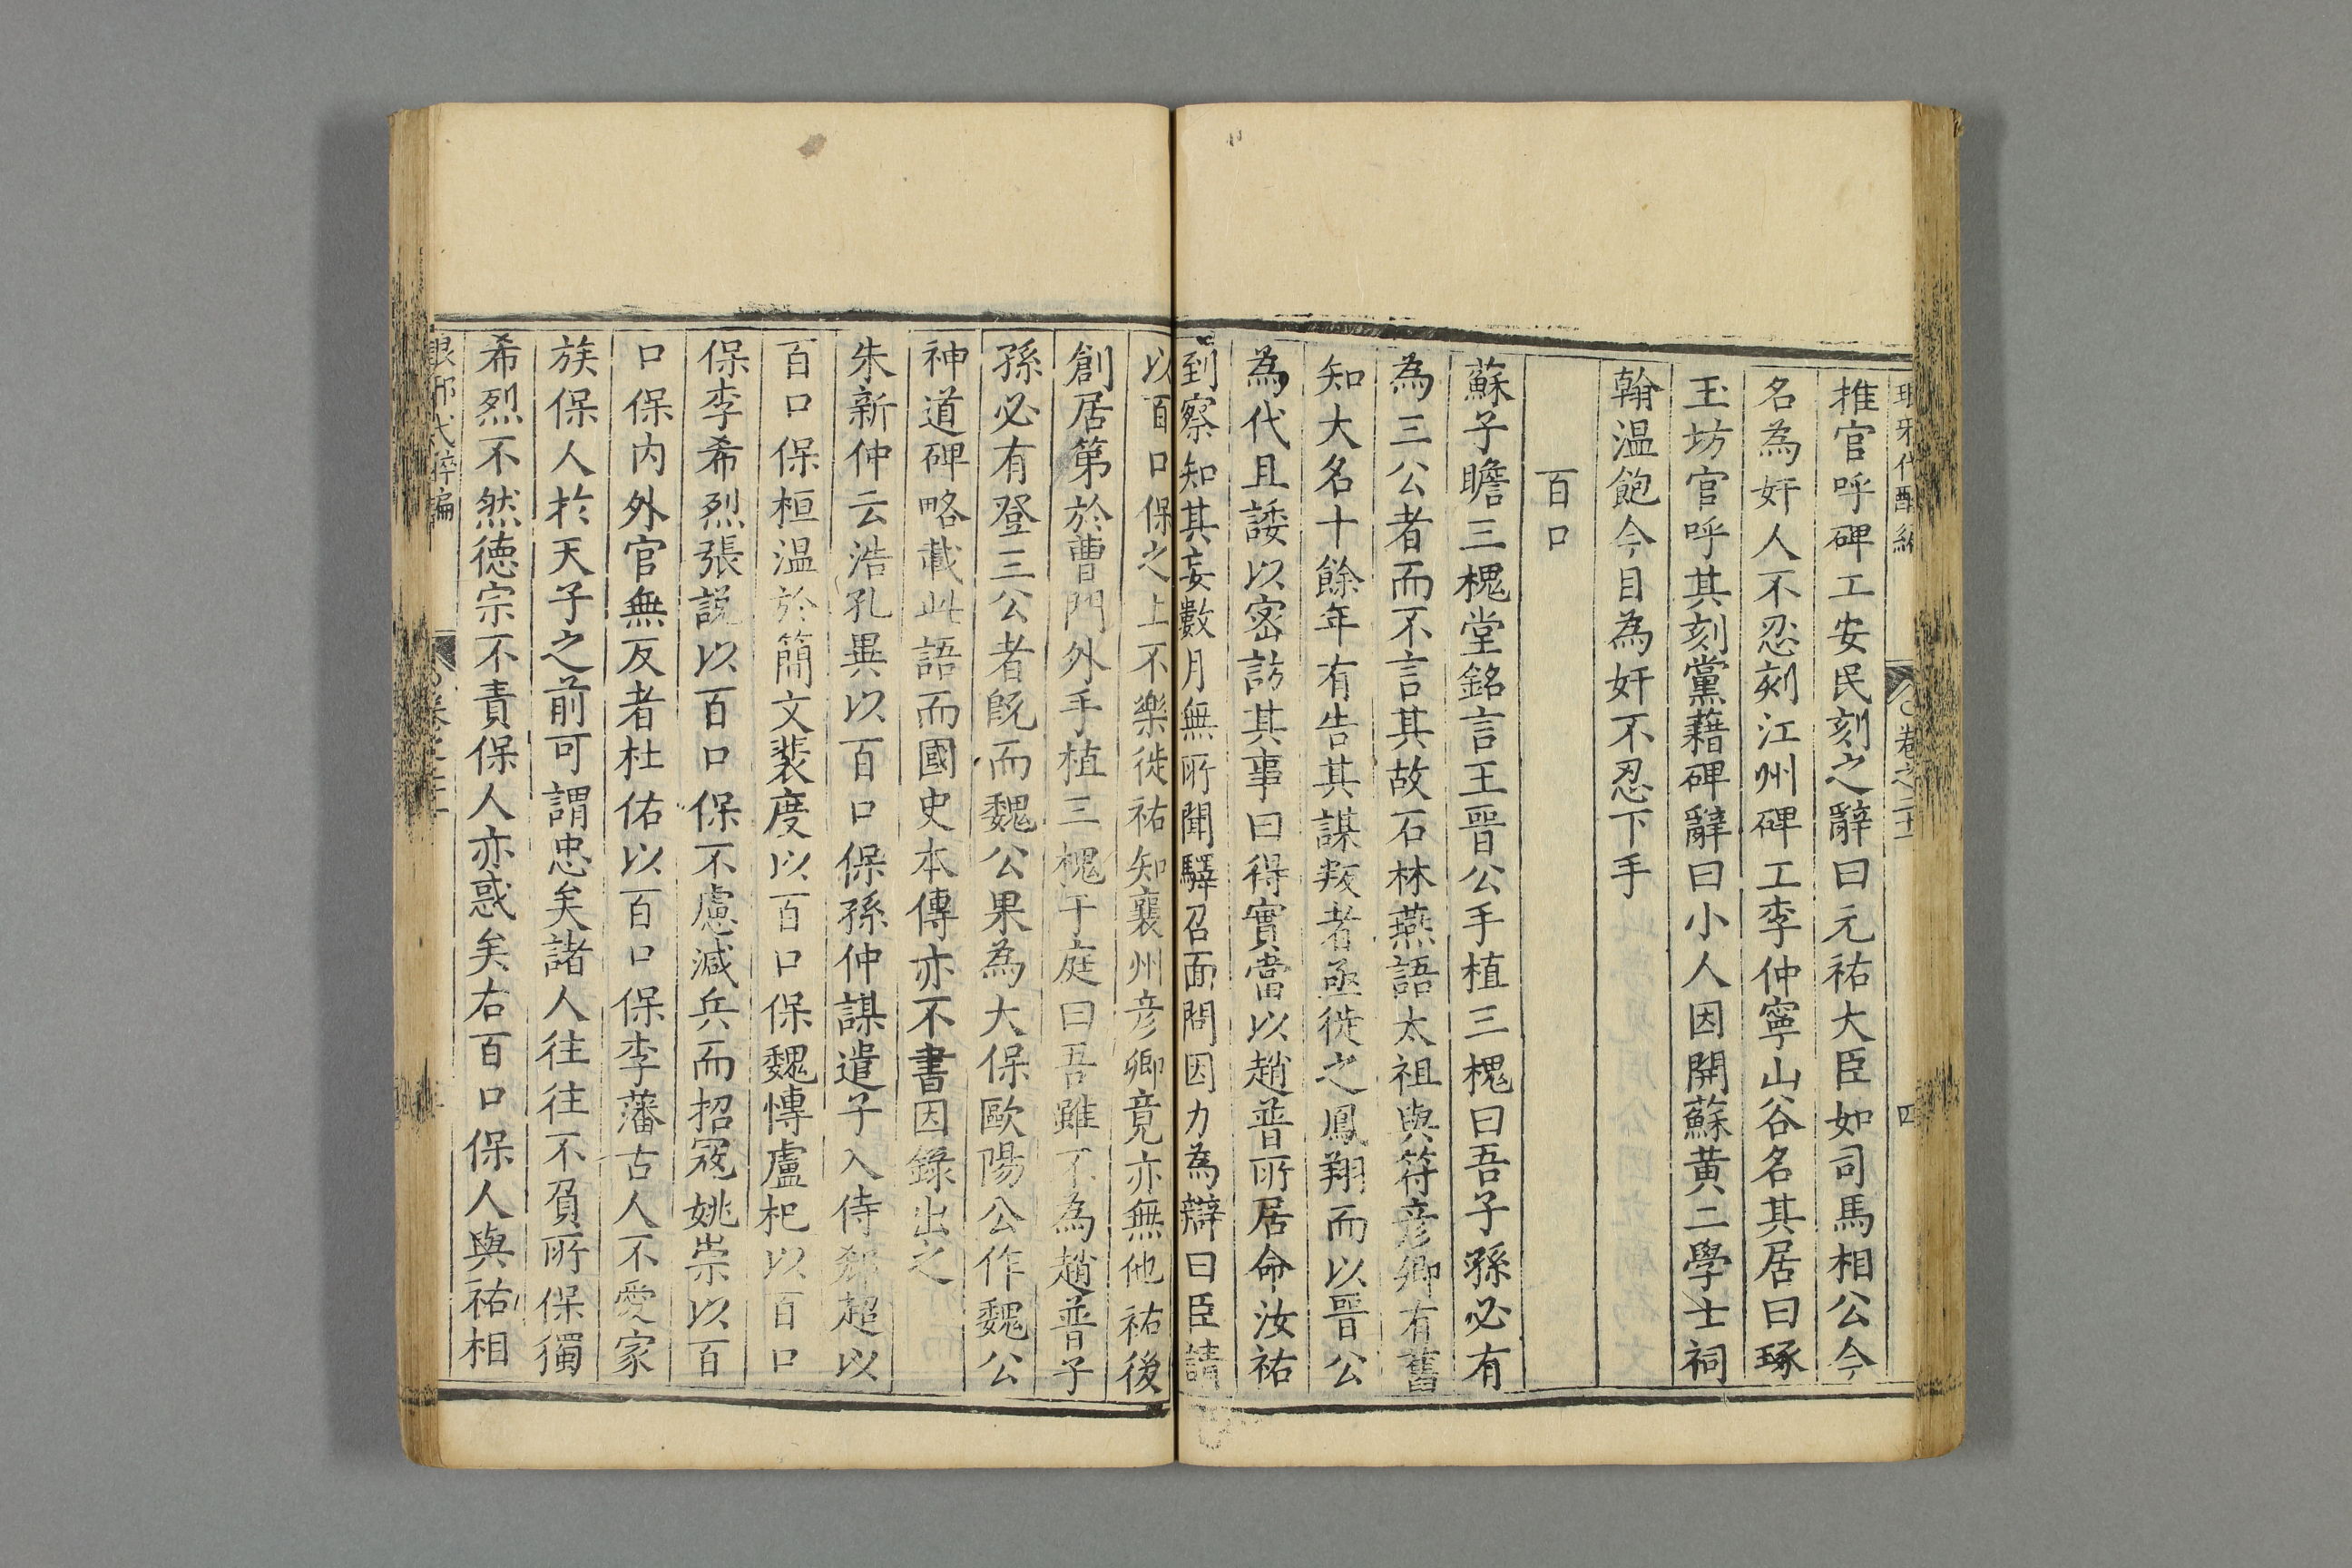 推官呼碑工安民刻之辭曰元祐大臣如司馬相公今
名為奸人不忍刻江州碑工李仲寧山谷名其居曰琢
玉坊官呼其刻黨藉碑辭曰小人因開蘇黄二學士祠
翰温飽今目為奸不忍下手
百口
蘇子瞻三槐堂銘言王晉公手植三槐曰吾子孫必有
為三公者而不言其故石林燕語太祖與符彦卿有舊
知大名十餘年有告其謀叛者亟徙之鳳翔而以晉公
為代且諉以宻訪其事曰得實當以趙普所居命汝祐
到察知其妄數月無所聞驛召面問因力為辯曰臣請
以百口保之上不樂徙祐知襄州彦卿竟亦無他祐後
創居第於曹門外手植三槐于庭曰吾雖不為趙普子
孫必有登三公者既而魏公果為大保歐陽公作魏公
神道碑略載此語而國史本傳亦不書因錄出之
朱新仲云浩孔異以百口保孫仲謀遣子入侍郄超以
百口保桓温於簡文裴度以百口保魏愽盧杞以百口
保李希烈張説以百口保不慮減兵而招冦姚崇以百
口保内外官無反者杜佑以百口保李藩古人不愛家
族保人於天子之前可謂忠矣諸人往往不負所保獨
希烈不然徳宗不責保人亦惑矣右百口保人與祐相